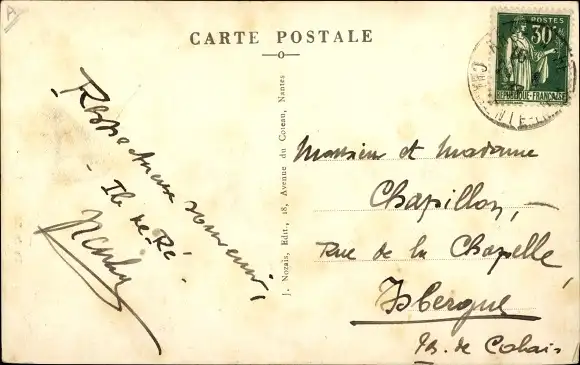 A
CARTE POSTALE
POSTES
30c
REPUBLIQUE-FRANÇAISE
Respectueux souvenir,
- Ile de Ré -
J. Nozais, Edit., 18, Avenue du Coteau, Nantes
Monsieur et Madame
Chapillon, -
Rue de la Chapelle,
Isbergue
Pas. de Calais